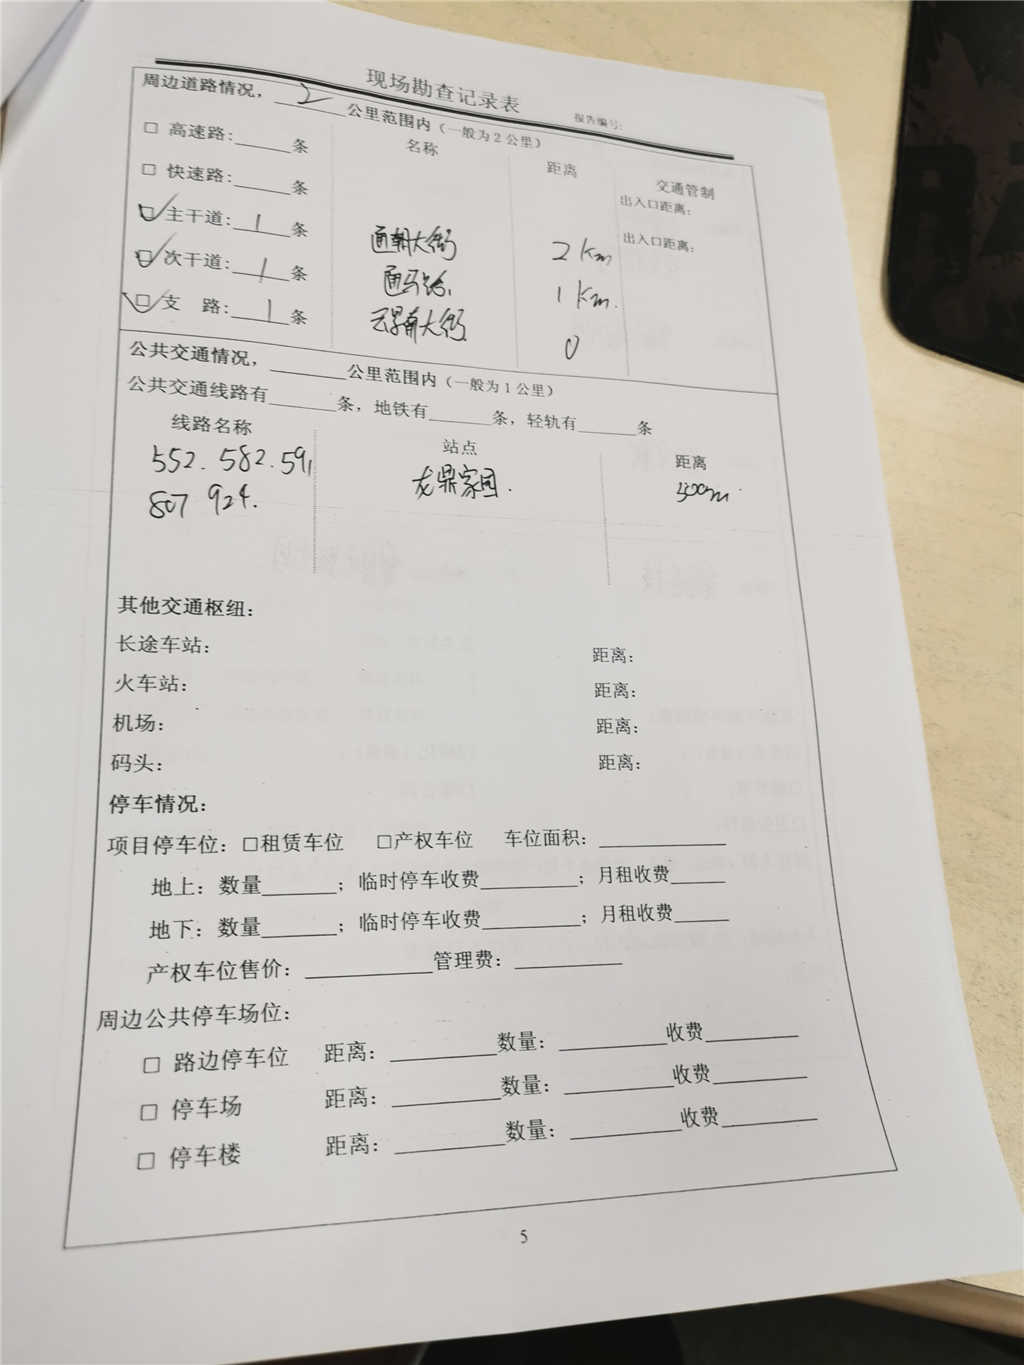 现场勘查记录表
报告编号:
周边道路情况， 2 公里范围内（一般为2公里）
名称 距离 交通管制
□ 高速路:______条 出入口距离:
□ 快速路:______条 出入口距离:
☑ 主干道: 1 条 通朝大街 2km
☑ 次干道: 1 条 通马路 1km.
☑ 支 路: 1 条 云景南大街 0
公共交通情况，______公里范围内（一般为1公里）
公共交通线路有______条，地铁有______条，轻轨有______条
线路名称 站点 距离
552. 582. 591 龙鼎家园. 500m
807 924.
其他交通枢纽:
长途车站: 距离:
火车站: 距离:
机场: 距离:
码头: 距离:
停车情况:
项目停车位: □租赁车位 □产权车位 车位面积:__________
地上: 数量______; 临时停车收费________; 月租收费_____
地下: 数量______; 临时停车收费________; 月租收费_____
产权车位售价: __________管理费: _________
周边公共停车场位:
□ 路边停车位 距离: _________数量: _________收费________
□ 停车场 距离: _________数量: _________收费________
□ 停车楼 距离: _________数量: _________收费________
5